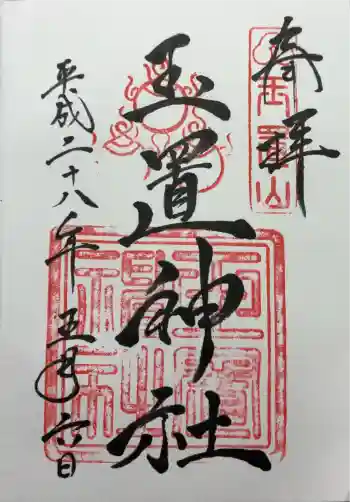 奉拝
玉置山
玉置神社
平成二十八年五月六日